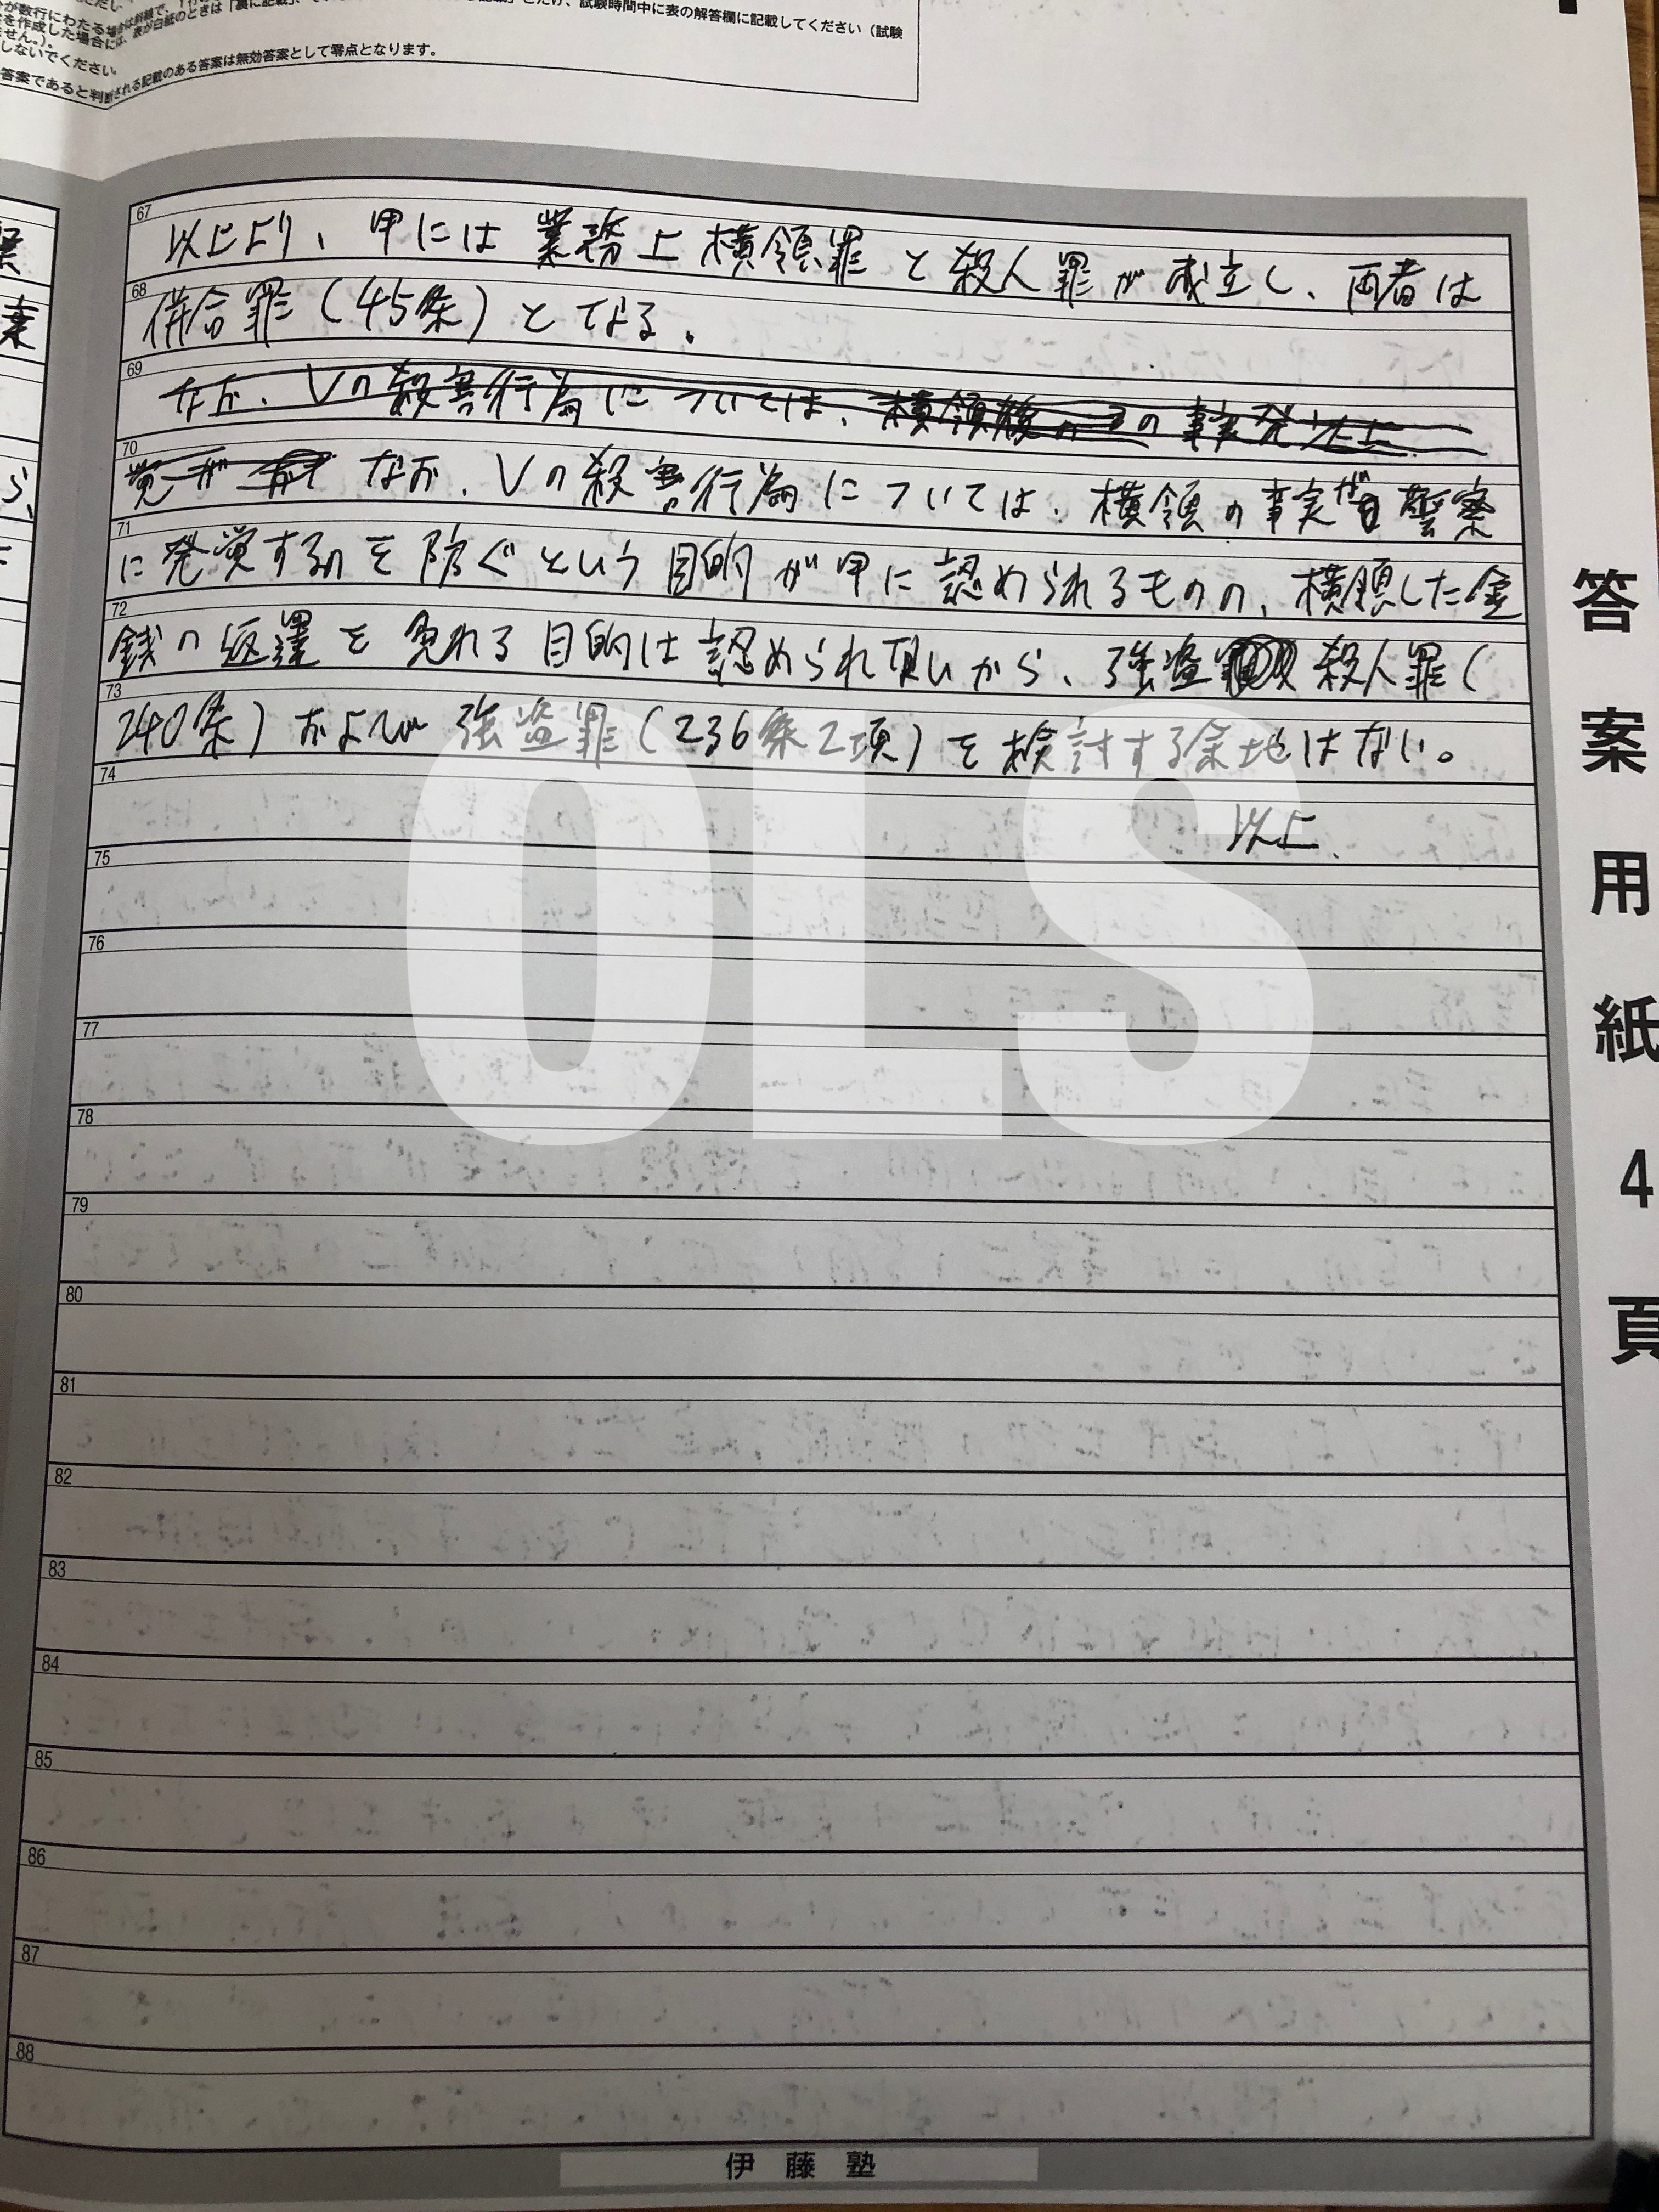 試験時間中に表の解答欄に記載してください（試験
が数行にわたる場合は斜線で、
を作成した場合に
は、表が白紙のときは「裏に記載」
ません。）。
しないでください。
答案であると判断される記載のある答案は無効答案として零点となります。
67
以上より、甲には業務上横領罪と殺人罪が成立し、両者は
68
併合罪（45条）となる。
69
なお、Vの殺害行為については、横領の事実発
70
覚がなお、Vの殺害行為については、横領の事実が警察
71
に発覚するのを防ぐという目的が甲に認められるものの、横領した金
72
銭の返還を免れる目的は認められないから、強盗殺人罪（
73
240条）および強盗罪（236条2項）を検討する余地はない。
74
以上
75
76
77
78
79
80
81
82
83
84
85
86
87
88
OLS
答案用紙4頁
伊藤塾